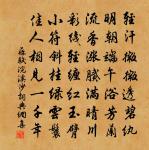 輕汗微微透碧紈
明朝端午浴芳蘭
流香漲膩滿晴川
彩線輕纏紅玉臂
小符斜挂綠雲鬟
佳人相見一千年
蘇軾浣溪沙詞